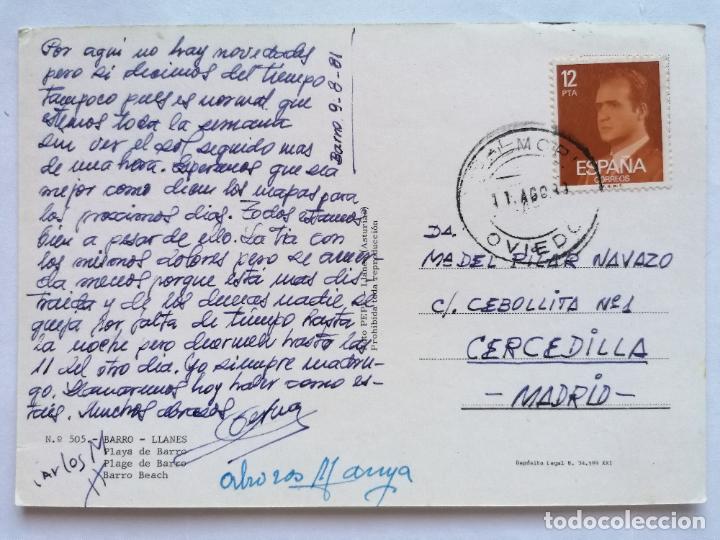 Por aqui no hay novedades
pero si decimos del tiempo
tampoco pues es normal que
estemos toda la semana
sin ver el sol seguido mas
de una hora. Esperemos que sea
mejor como dicen los mapas para
los proximos dias. Todos estamos
bien a pesar de ello. La tia con
los mismos dolores pero se acuer
da menos porque está mas dis
traida y de los demas nadie se
queja por falta de tiempo hasta
la noche pero duermen hasta las
11 del otro dia. Yo siempre madru-
go. Llamaremos hoy haber como es-
tais. Muchos abrazos
Barro 9-8-81
Carlos M
N.º 505.- BARRO - LLANES
Playa de Barro
Plage de Barro
Barro Beach
Foto PEPE - Llanes (Asturias)
Prohibida toda reproducción
12
PTA
ESPAÑA
CORREOS
11 AGO
OVIEDO
DA.
Mª DEL PILAR NAVAZO
C/. CEBOLLITA Nº 1
CERCEDILLA
- MADRID -
Depósito Legal B. 34.599 XXI
todocoleccion
todocoleccion.net